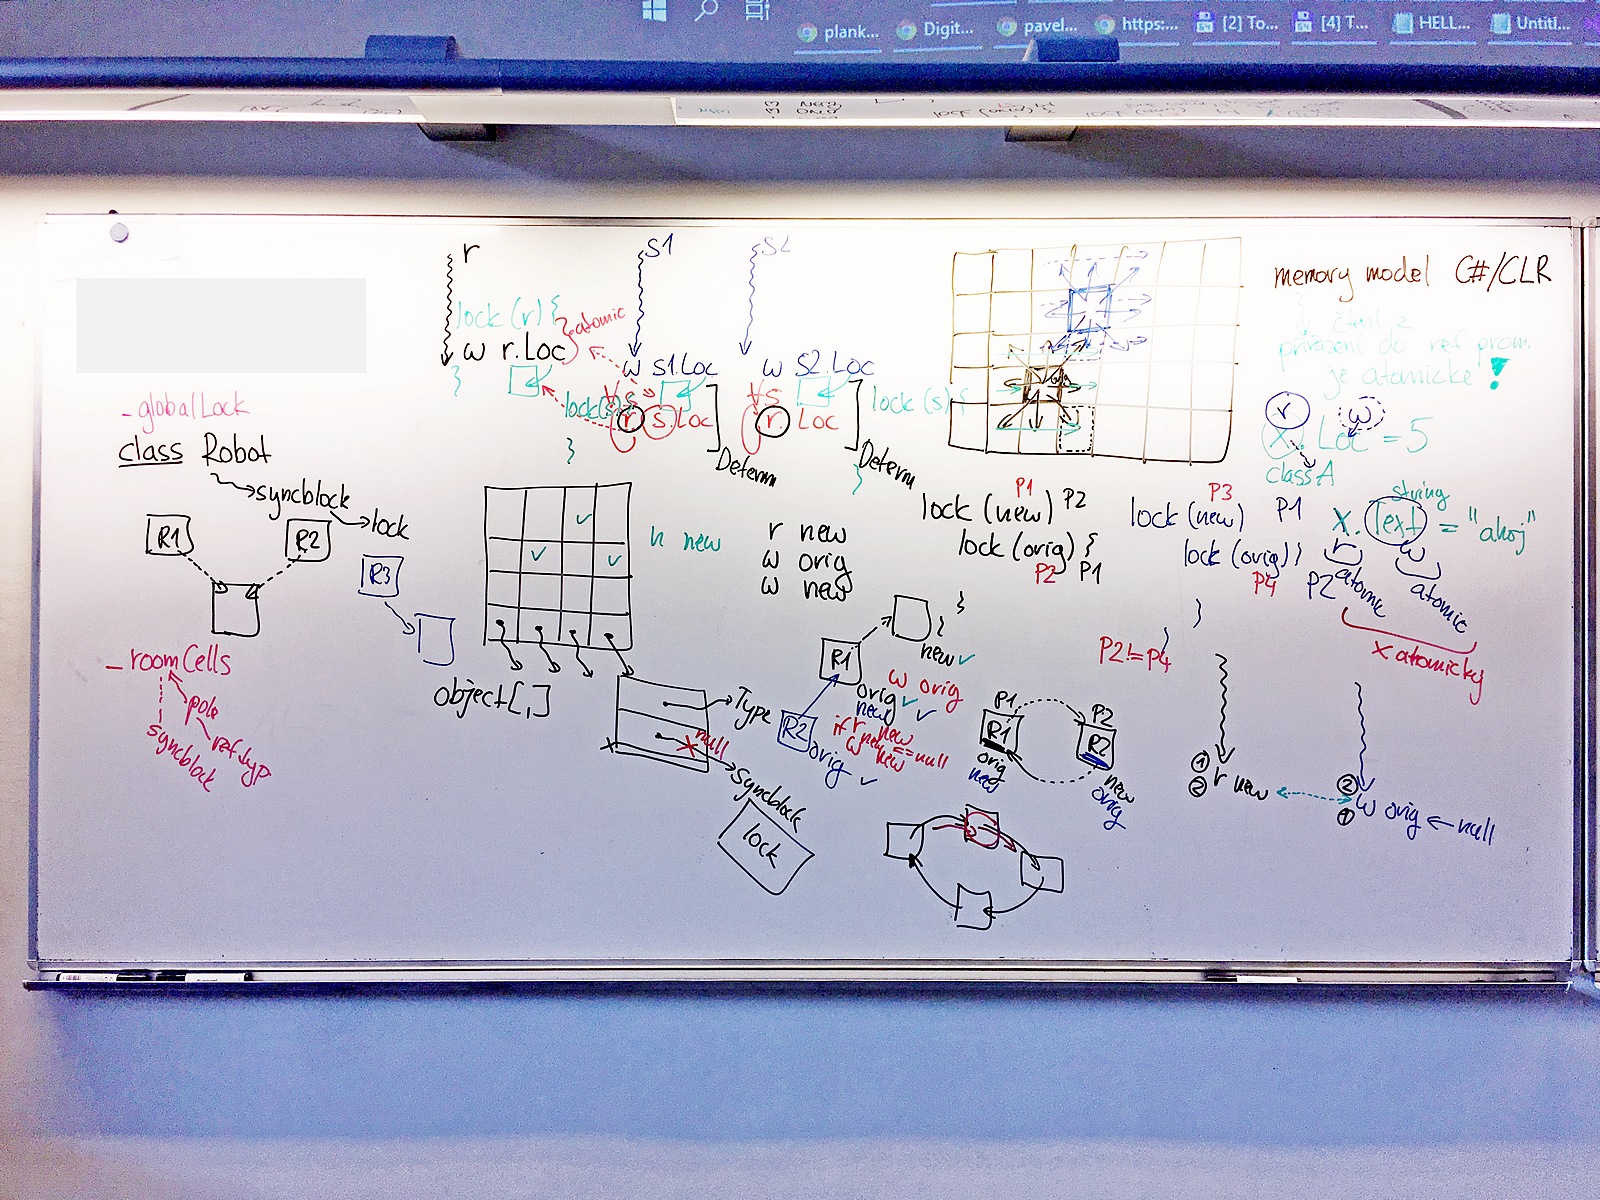 plank...
Digit...
pavel...
https:...
[2] To...
[4] T...
HELL...
Untitl...
r
S1
S2
lock (r) {
atomic
w r.Loc
}
w S1.Loc
w S2.Loc
lock(s) {
r s.Loc
r Loc
lock (s) {
}
}
Determ
Determ
memory model C#/CLR
čtení z
přiřazení do ref prom.
je atomické !
r
w
X.Loc = 5
class A
string
X.Text = "ahoj"
r
w
atomic
atomic
x atomicky
_globalLock
class Robot
syncblock
lock
R1
R2
R3
_roomCells
pole
ref.typ
syncblock
object[,]
Type
null
Syncblock
lock
r new
w orig
w new
P1
P2
lock (new)
lock (orig) {
P2
P1
}
P3
P1
lock (new)
lock (orig) }
P4
P2
}
P2!=P4
R1
new
R2
orig
orig
new
w orig
r new
if new==null
w new
P1
R1
orig
new
P2
R2
new
orig
1
2
r new
2
1
w orig ← null